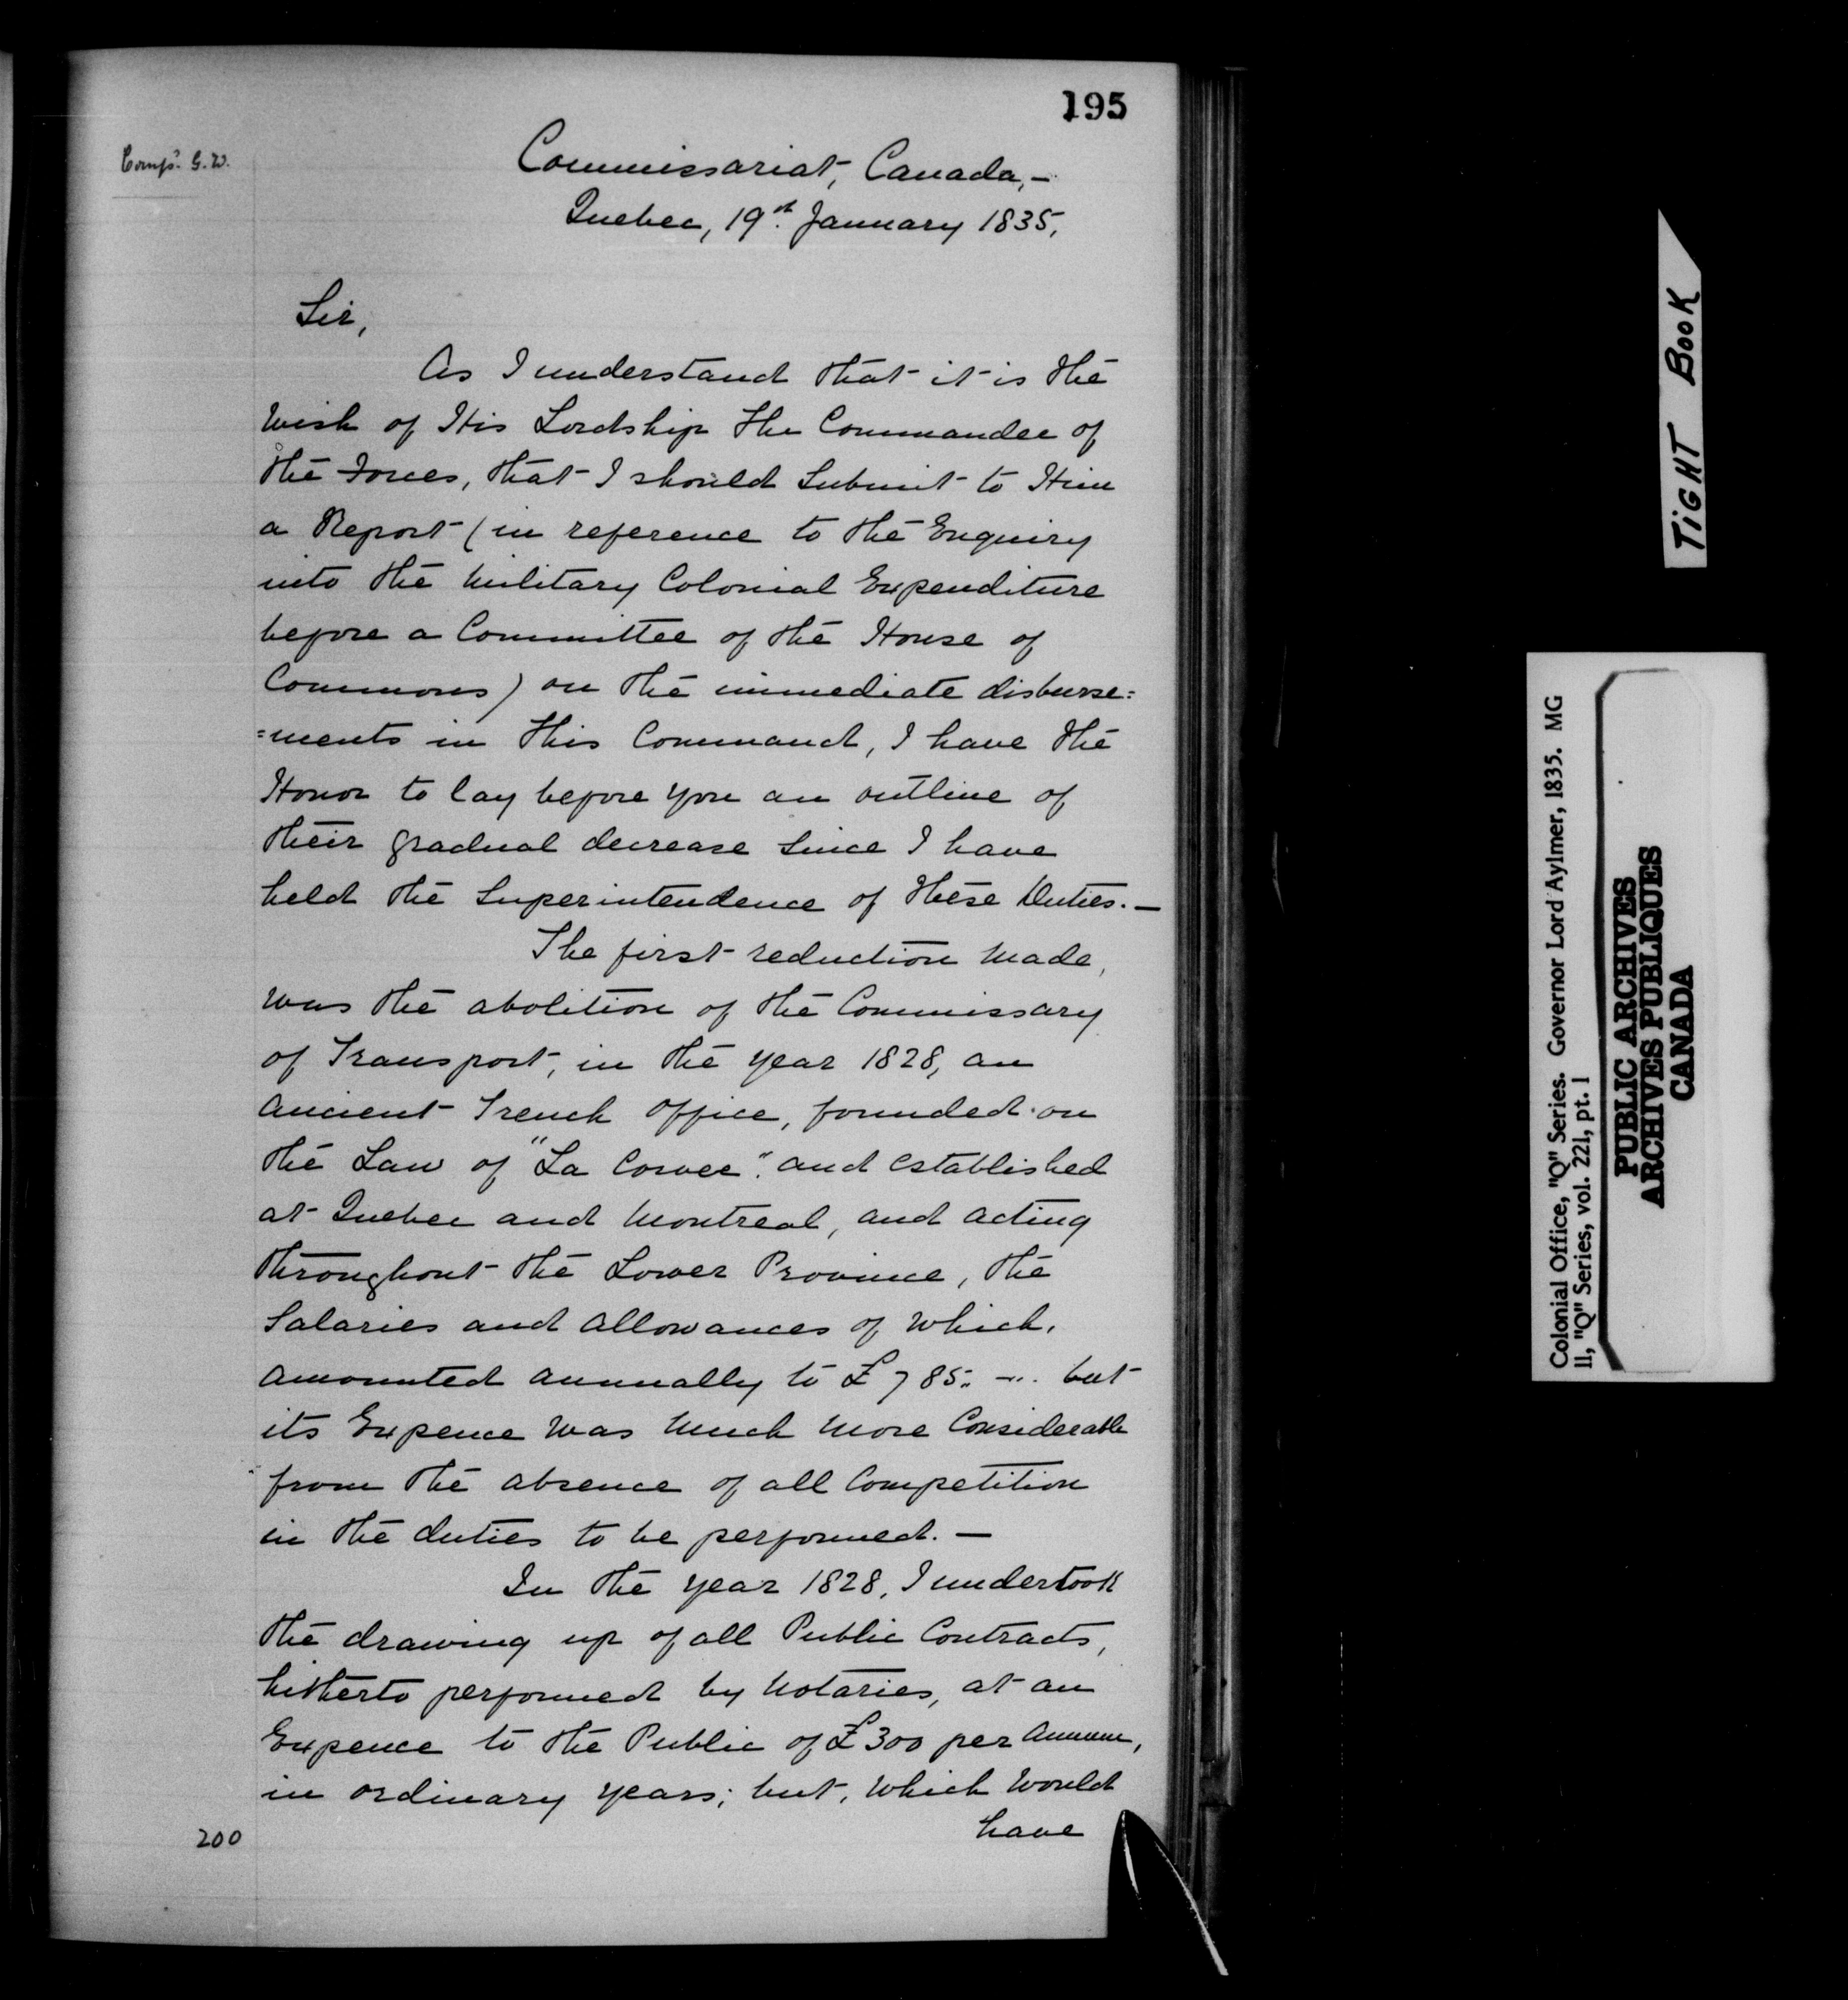 195
Comp'd. G.W.
Commissariat, Canada,—
Quebec, 19th. January 1835,
Sir,
As I understand that it is the
wish of His Lordship the Commander of
the Forces, that I should Submit to Him
a Report (in reference to the Enquiry
into the Military Colonial Expenditure
before a Committee of the House of
Commons) on the immediate disburse=
=ments in this Command, I have the
Honor to lay before you an outline of
their gradual decrease since I have
held the Superintendence of these Duties.—
The first reduction made,
was the abolition of the Commissary
of Transport, in the year 1828, an
ancient French office, founded on
the Law of "La Corvee". and established
at Quebec and Montreal, and acting
throughout the Lower Province, the
Salaries and Allowances of which,
amounted annually to £785. —".. but
its Expence was much more Considerable
from the absence of all Competition
in the duties to be performed.—
In the year 1828, I undertook
the drawing up of all Public Contracts,
hitherto performed by Notaries, at an
Expence to the Public of £300 per Annum,
in ordinary years; but, which would
have
200
TIGHT BOOK
Colonial Office, "Q" Series. Governor Lord Aylmer, 1835. MG
11, "Q" Series, vol. 221, pt. 1
PUBLIC ARCHIVES
ARCHIVES PUBLIQUES
CANADA